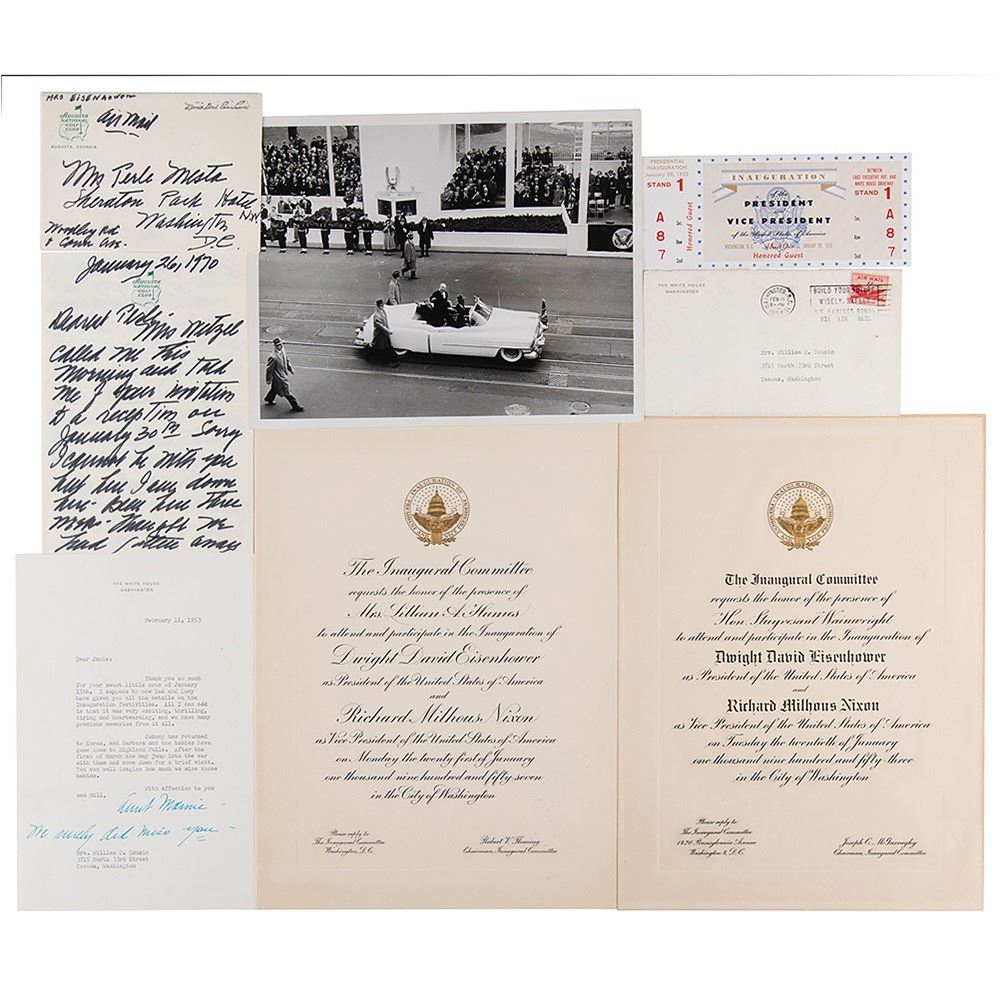 MRS EISENHOWER
Augusta
NATIONAL
GOLF
CLUB
AUGUSTA, GEORGIA
Air Mail
Mrs Perle Mesta
Sheraton Park Hotel
Washington
D.C.
Woodley Rd
& Conn Ave.
January 26, 1970
Augusta
NATIONAL
GOLF
CLUB
Dearest Perle:
Mrs Wetzel
called me this
morning and told
me of your invitation
to a reception on
January 30th Sorry
I cannot be with you
but here I am down
here - been here three
weeks - thought we
had gotten away
THE WHITE HOUSE
WASHINGTON
February 11, 1953
Dear Janis:
Thank you so much
for your sweet little note of January
15th. I suppose by now Dad and Lony
have given you all the details on the
Inauguration festivities. All I can add
is that it was very exciting, thrilling,
tiring and heartwarming, and we have many
precious memories from it all.
Johnny has returned
to Korea, and Barbara and the babies have
gone home to Highland Falls. After the
first of March she may jump into the car
with them and come down for a brief visit.
You can well imagine how much we miss those
babies.
With affection to you
and Bill,
Aunt Mamie -
We surely did miss you -
Mrs. William C. Cousin
3715 North 33rd Street
Tacoma, Washington
PRESIDENTIAL
INAUGURATION
January 20, 1953
STAND 1
A
8
7
Row
Seat
Honored Guest
INAUGURATION
of the
PRESIDENT
and
VICE PRESIDENT
of the United States of America
WASHINGTON, D. C. JANUARY 20, 1953
Honored Guest
BETWEEN
EAST EXECUTIVE AVE. AND
WHITE HOUSE DRIVEWAY
STAND 1
A
8
7
Sec.
Row
Seat
THE WHITE HOUSE
WASHINGTON
FEB 11
BUILD YOUR FUTURE
WISELY, SAFELY
U.S. SAVINGS BONDS
VIA AIR MAIL
AIR MAIL
Mrs. William C. Cousin
3715 North 33rd Street
Tacoma, Washington
INAUGURATION OF PRESIDENT AND VICE PRESIDENT
The Inaugural Committee
requests the honor of the presence of
Mrs. Lillian A. Humes
to attend and participate in the Inauguration of
Dwight David Eisenhower
as President of the United States of America
and
Richard Milhous Nixon
as Vice President of the United States of America
on Monday the twenty first of January
one thousand nine hundred and fifty seven
in the City of Washington
Please reply to
The Inaugural Committee
Washington, D. C.
Robert V. Fleming
Chairman, Inaugural Committee
INAUGURATION OF PRESIDENT AND VICE PRESIDENT
The Inaugural Committee
requests the honor of the presence of
Hon. Stuyvesant Wainwright
to attend and participate in the Inauguration of
Dwight David Eisenhower
as President of the United States of America
and
Richard Milhous Nixon
as Vice President of the United States of America
on Tuesday the twentieth of January
one thousand nine hundred and fifty-three
in the City of Washington
Please reply to
The Inaugural Committee
1420 Pennsylvania Avenue
Washington 8, D. C.
Joseph C. McGarraghy
Chairman, Inaugural Committee